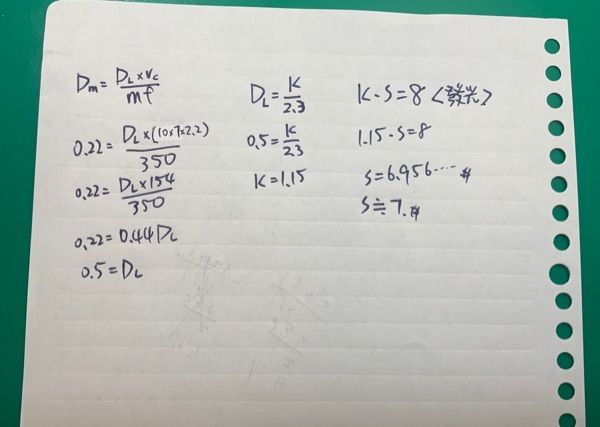 Dm = DL×Vc / mf
0.22 = DL×(10×7×2.2) / 350
0.22 = DL×154 / 350
0.22 = 0.44 DL
0.5 = DL
DL = K / 2.3
0.5 = K / 2.3
K = 1.15
K·S = 8 <發光>
1.15·S = 8
S = 6.956···· #
S ≒ 7. #